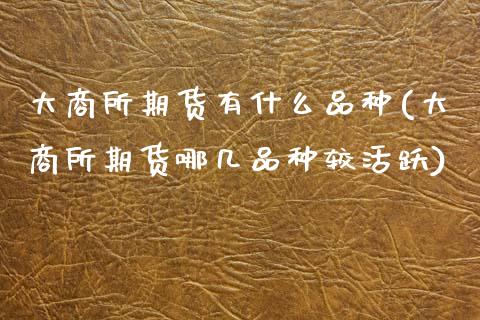 大商所期货有什么品种(大
商所期货哪几品种较活跃)